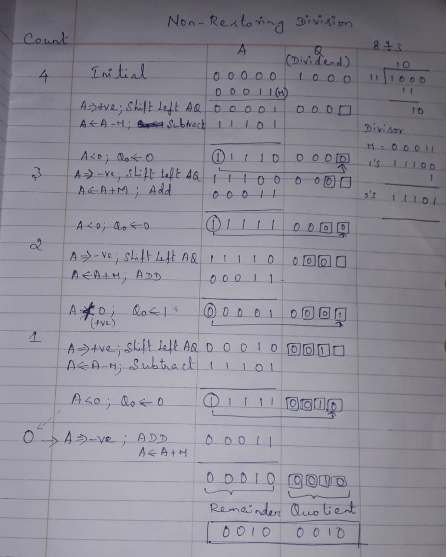 Non-Restoring Division
Count A Q (Dividend) 8 ÷ 3
4 Initial 0 0 0 0 0 1 0 0 0
0 0 0 1 1 (M)
A→+ve; Shift Left AQ 0 0 0 0 1 0 0 0 □
A←A-M; Subtract 1 1 1 0 1
A<0; Q₀←0 1 1 1 1 0 0 0 0 0
3 A→-ve; Shift Left AQ 1 1 1 0 0 0 0 0 □
A←A+M; Add 0 0 0 1 1
A<0; Q₀←0 1 1 1 1 1 0 0 0 0
2 A→-ve; Shift Left AQ 1 1 1 1 0 0 0 0 □
A←A+M; ADD 0 0 0 1 1
A 0; Q₀←1 0 0 0 0 1 0 0 0 1
(+ve)
1 A→+ve; Shift Left AQ 0 0 0 1 0 0 0 1 □
A←A-M; Subtract 1 1 1 0 1
A<0; Q₀←0 1 1 1 1 1 0 0 1 0
0 → A→-ve; ADD 0 0 0 1 1
A←A+M
0 0 0 1 0 0 0 1 0
Remainder Quotient
0 0 1 0 0 0 1 0
10
11 1000
11
10
Divisor
M = 0 0 0 1 1
1's 1 1 1 0 0
1
2's 1 1 1 0 1